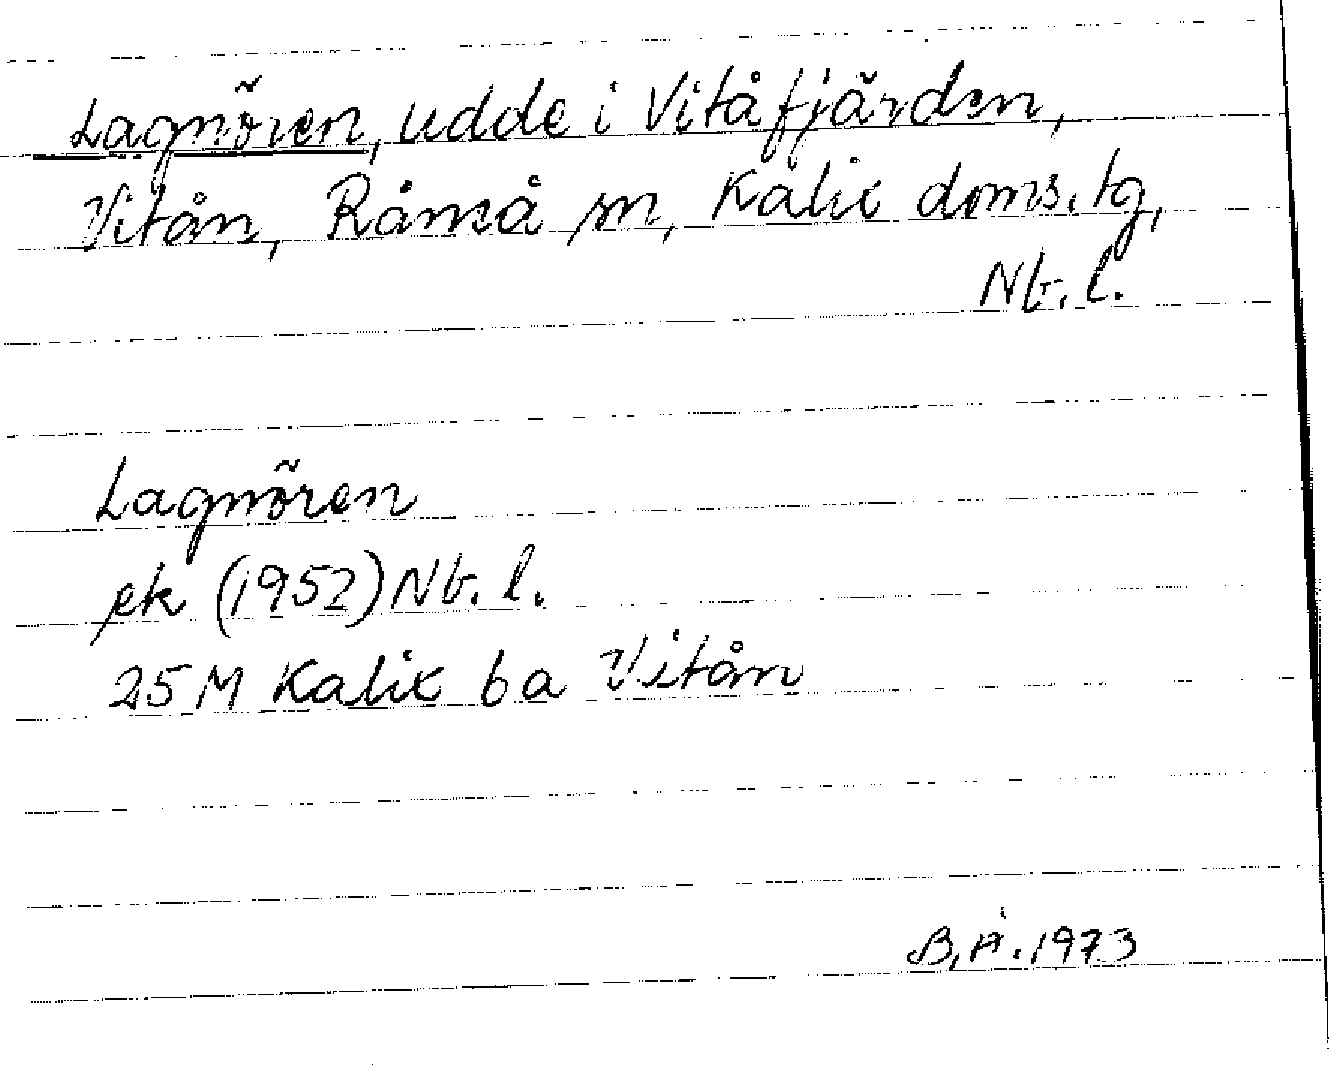 Lagnören, udde i Vitåfjärden,
Vitån, Råneå sn, Kalix doms.tg,
Nb. l.
Lagnören
ek (1952) Nb. l.
25 M Kalix 6 a Vitån
B. Å. 1973